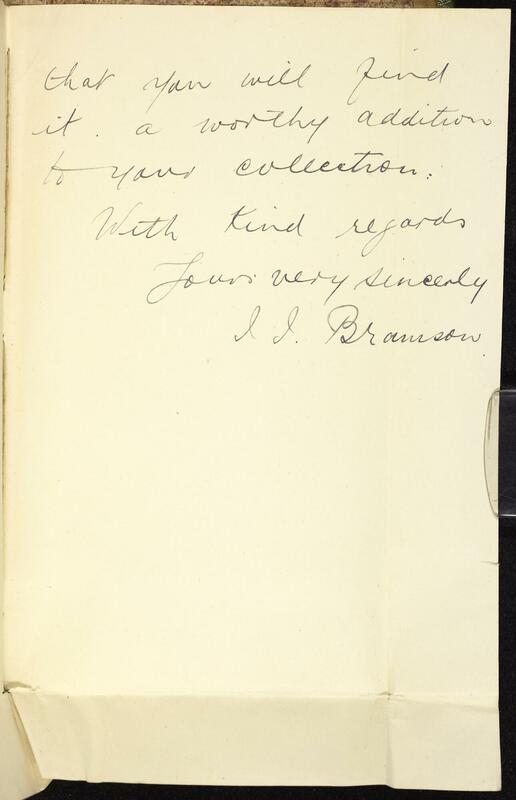 that you will find
it a worthy addition
to your collection.
With kind regards
Yours very sincerly
I. I. Bramson